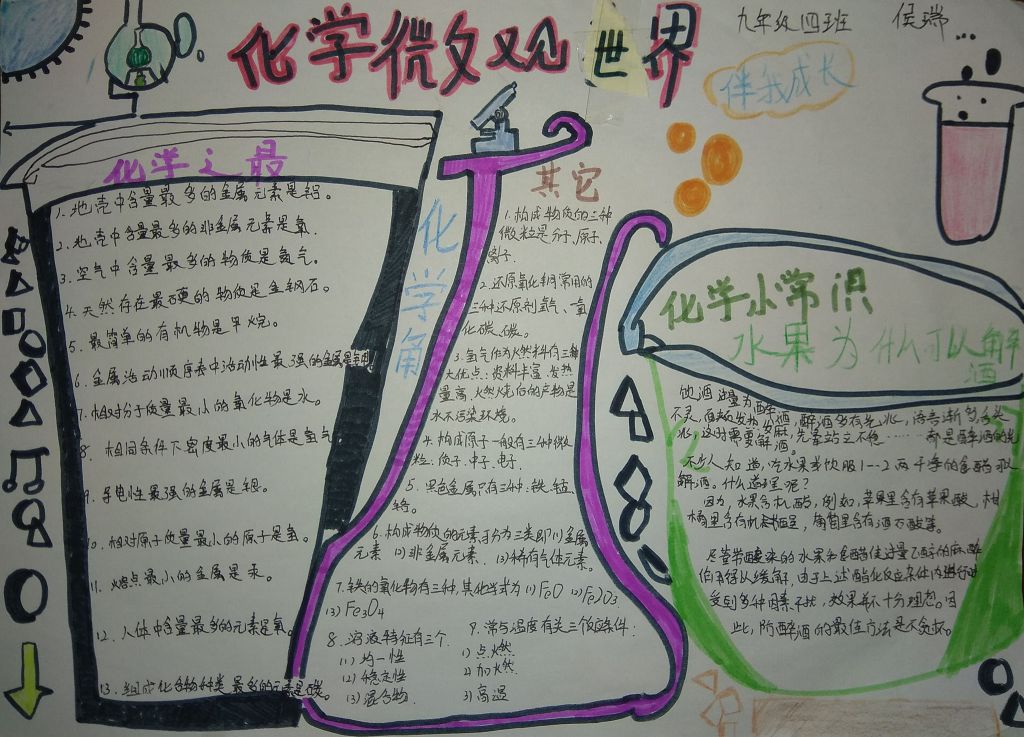 化学微观世界
九年级四班 侯瑞
伴我成长
化学之最
1. 地壳中含量最多的金属元素是铝。
2. 地壳中含量最多的非金属元素是氧.
3. 空气中含量最多的物质是氮气。
4. 天然存在最硬的物质是金钢石。
5. 最简单的有机物是甲烷。
6. 金属活动顺序表中活动性最强的金属是钾
7. 相对分子质量最小的氧化物是水。
8. 相同条件下密度最小的气体是氢气
9. 导电性最强的金属是银。
10. 相对原子质量最小的原子是氢。
11. 熔点最小的金属是汞。
12. 人体中含量最多的元素是氧。
13. 组成化合物种类最多的元素是碳。
化学角
其它
1. 构成物质的三种
微粒是分子、原子、
离子。
2. 还原氧化铜常用的
三种还原剂氢气、一氧
化碳、碳。
3. 氢气作为燃料有三
大优点：资料丰富，发热
量高，燃烧后的产物是
水不污染环境。
4. 构成原子一般有三种微
粒：质子、中子、电子.
5. 黑色金属只有三种：铁、锰、
铬。
6. 构成物质的元素可分为三类即(1)金属
元素 (2)非金属元素. (3)稀有气体元素。
7. 铁的氧化物有三种，其化学式为 (1) FeO (2) Fe2O3.
(3) Fe3O4
8. 溶液特征有三个.
(1) 均一性
(2) 稳定性
(3) 混合物
9. 常与温度有关三个反应条件：
1) 点燃
2) 加热
3) 高温
化学小常识
水果为什么可以解
酒
饮酒过量为醉酒，醉酒多有先兆，语言渐多，舌头
不灵，面颊发热发麻，先靠站立不稳……都是醉酒的先
兆，这时需要解酒。
不少人知道，吃水果或饮服1--2两干净的食醋可以
解酒。什么道理呢？
因为，水果含机酸，例如，苹果里含有苹果酸，柑
橘里含有机，葡萄里含有酒石酸等。
尽管带酸味的水果和食醋使过量乙醇的麻醉
作用得以缓解，由于上述酯化反应条件内进行时
受到多种因素干扰，效果并不十分理想。因
此，防醉酒的最佳方法是不贪杯。